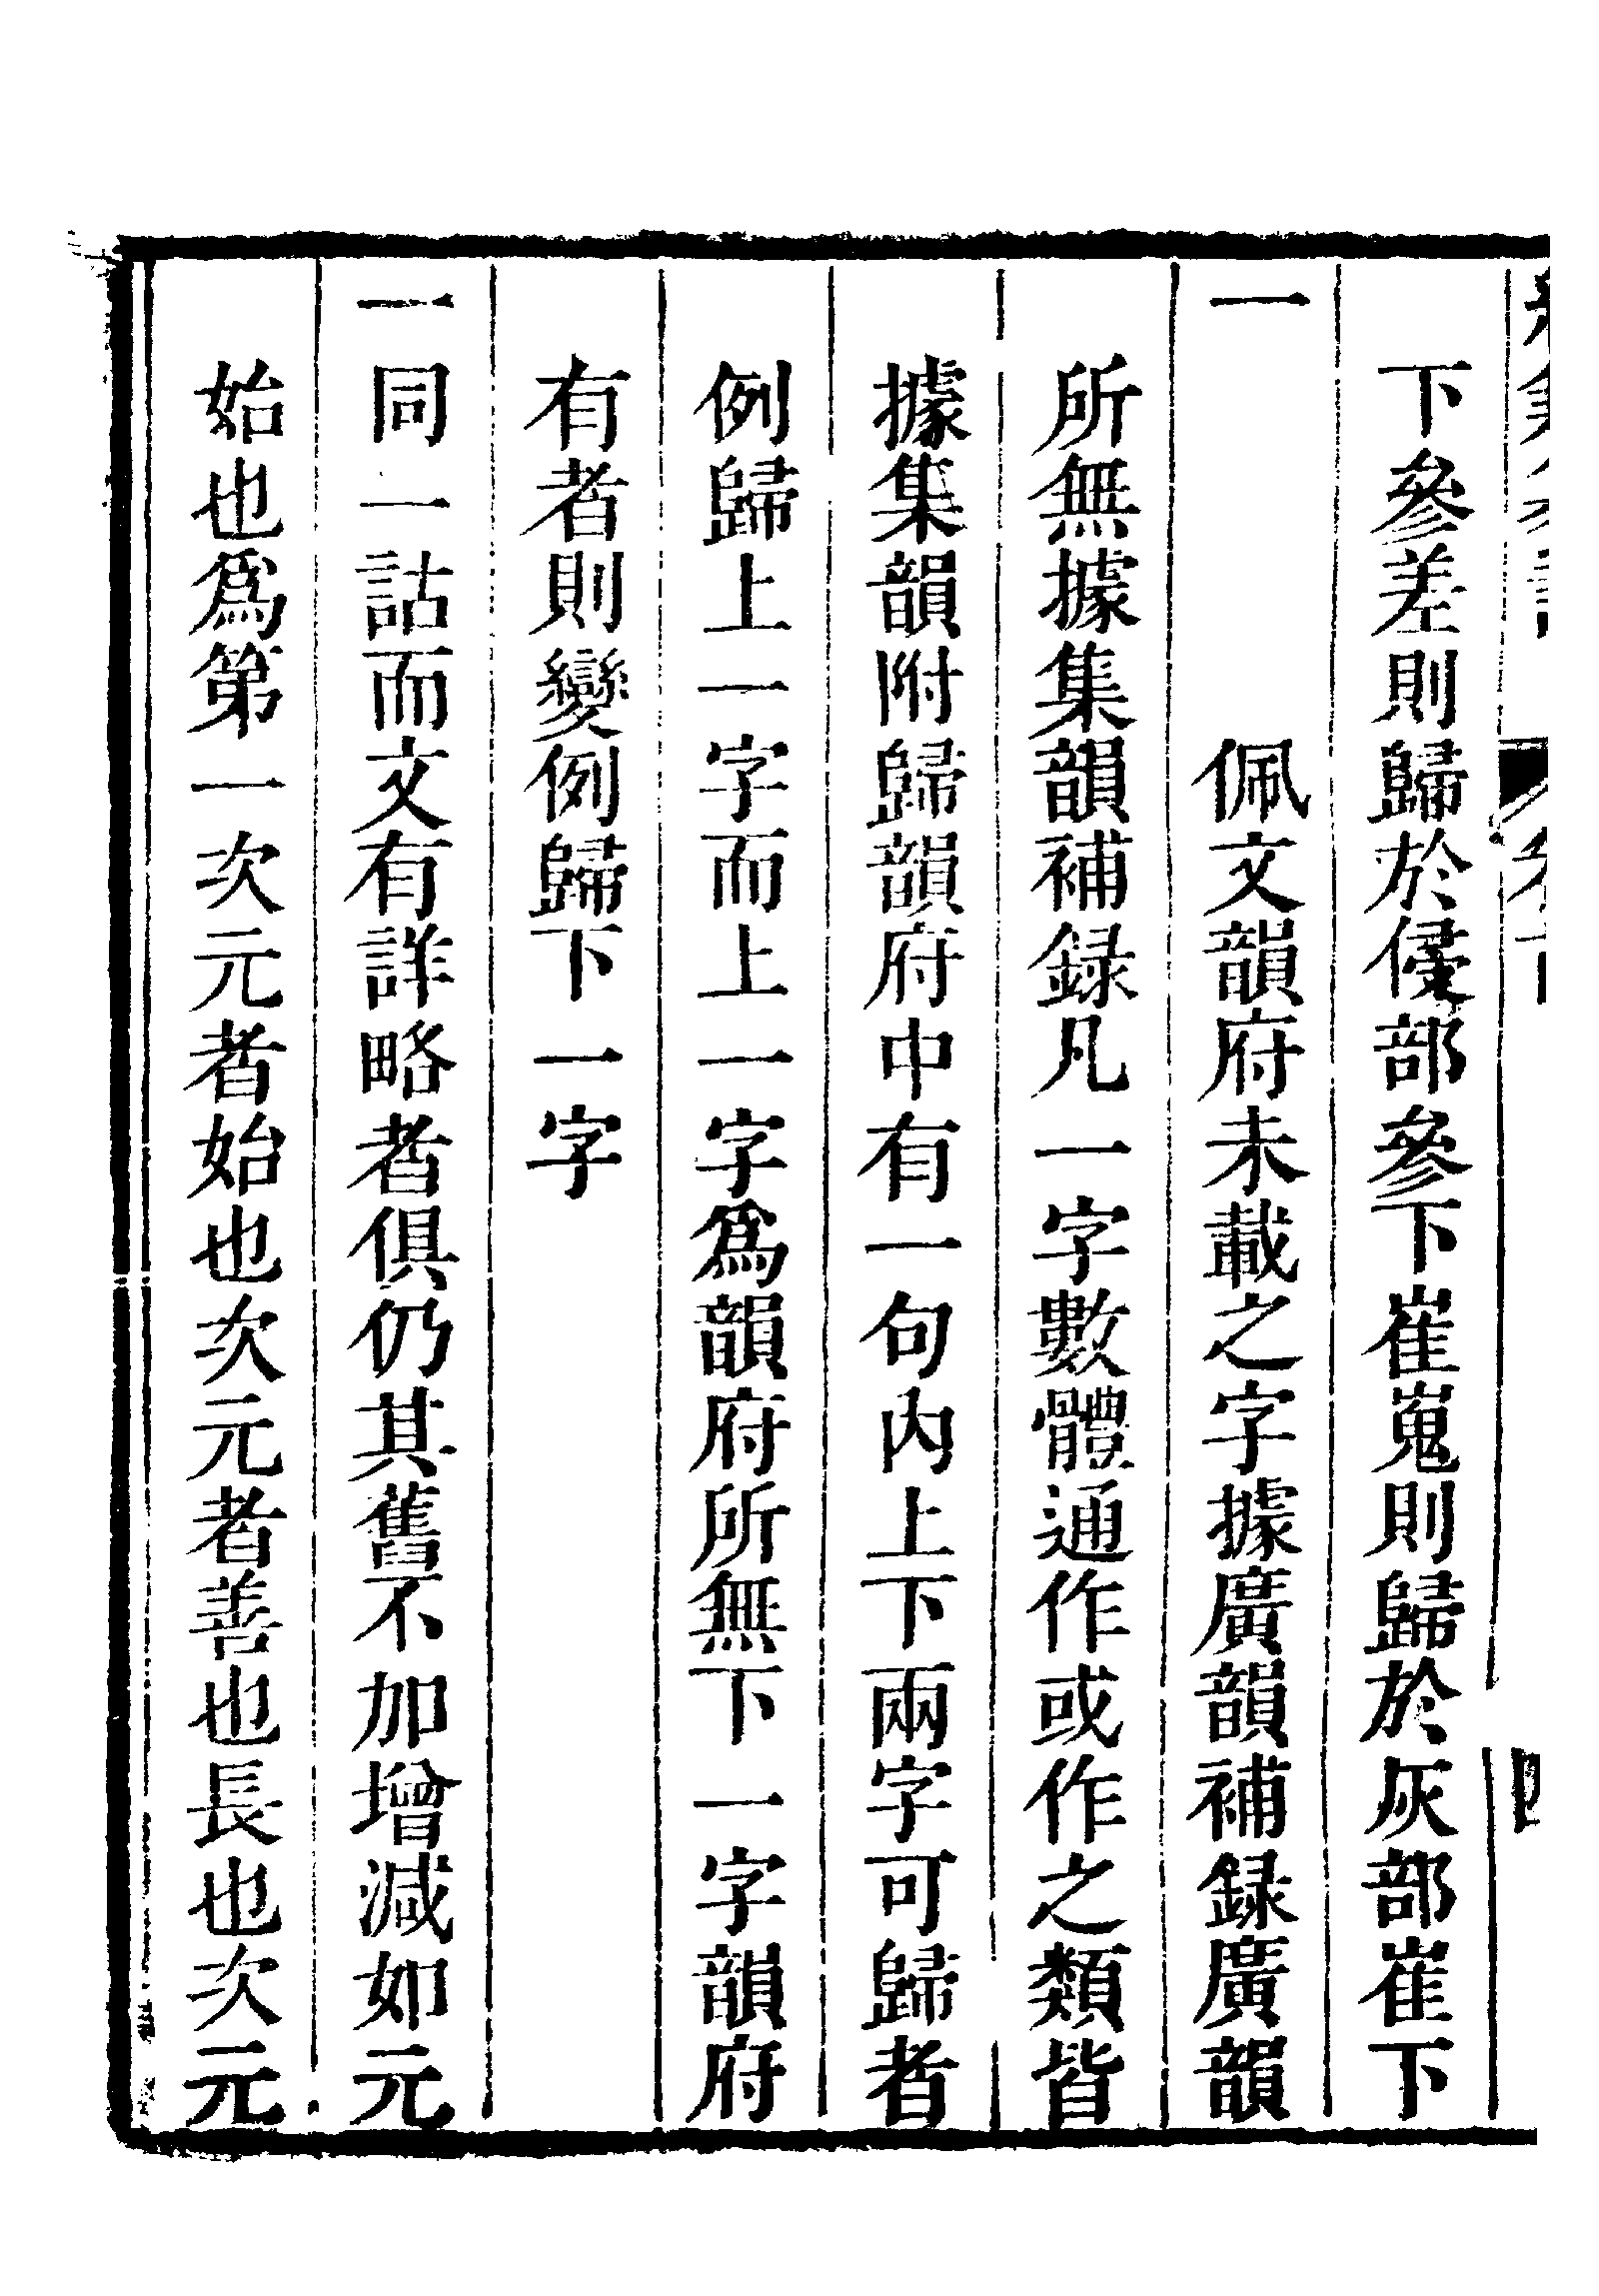 下參差則歸於侵部參下崔嵬則歸於灰部崔下
一　　　　佩文韻府未載之字據廣韻補録廣韻
所無據集韻補録凡一字數體通作或作之類皆
據集韻附歸韻府中有一句內上下兩字可歸者
例歸上一字而上一字爲韻府所無下一字韻府
有者則變例歸下一字
一同一詁而文有詳略者俱仍其舊不加增減如元
始也爲第一次元者始也次元者善也長也次元